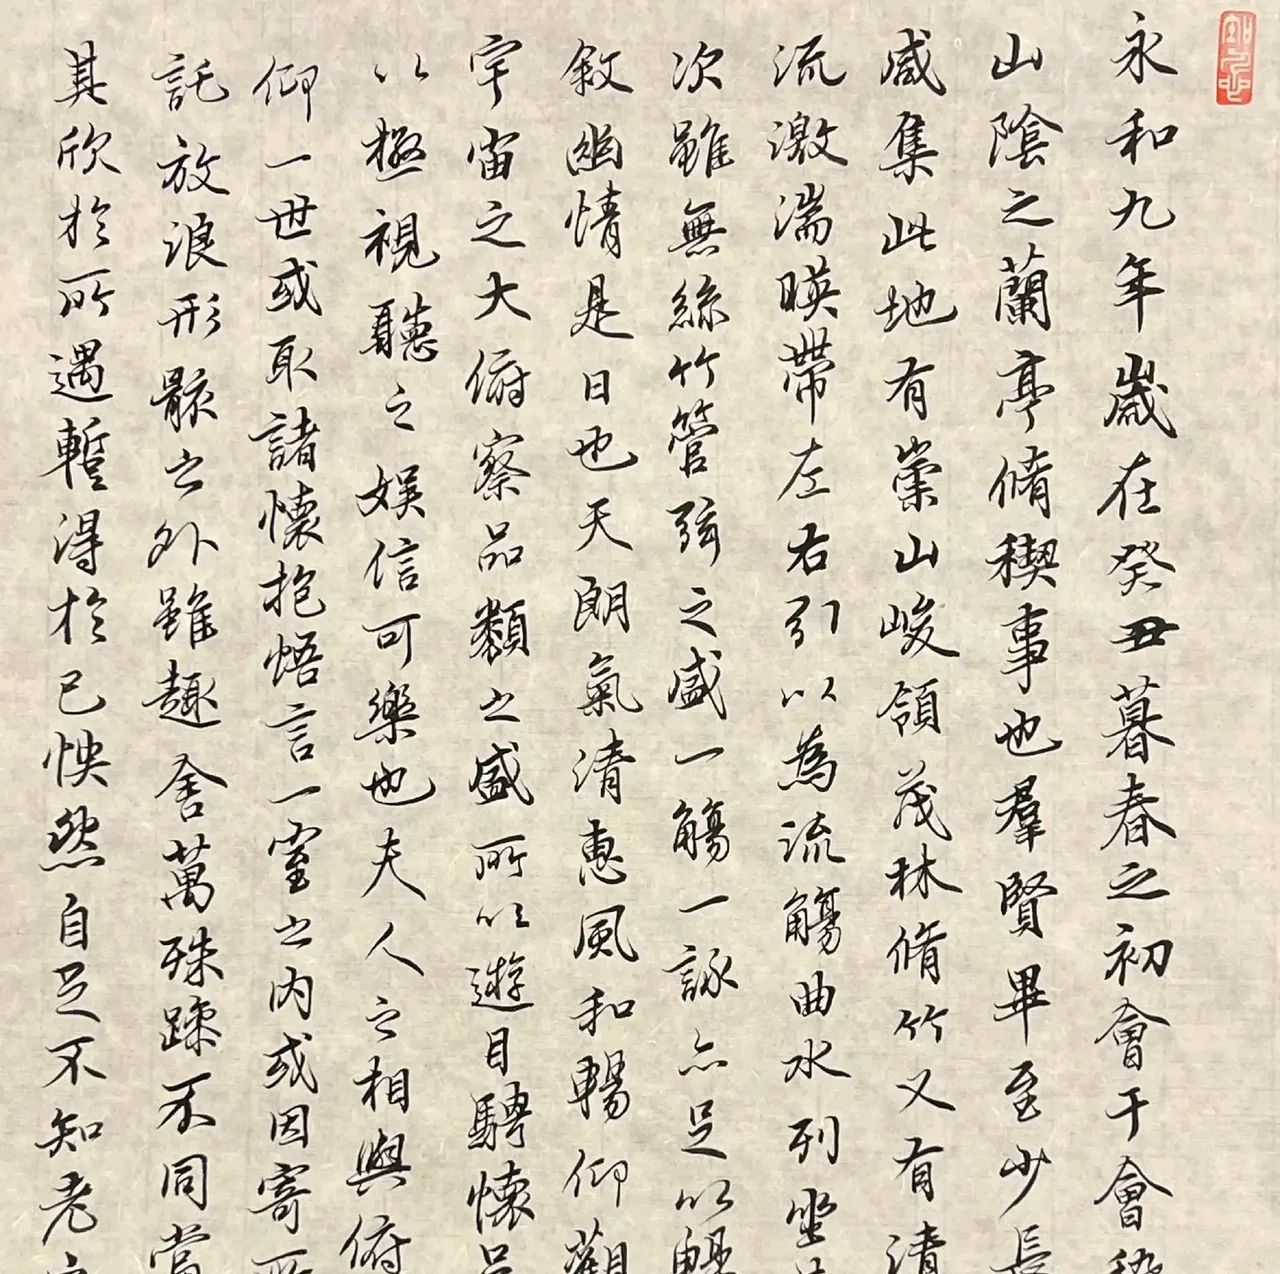 永和九年歲在癸丑暮春之初會于會稽
山陰之蘭亭脩稧事也羣賢畢至少長
咸集此地有崇山峻領茂林脩竹又有清
流激湍暎帶左右引以為流觴曲水列坐其
次雖無絲竹管弦之盛一觴一詠亦足以暢
敘幽情是日也天朗氣清惠風和暢仰觀
宇宙之大俯察品類之盛所以遊目騁懷足
以極視聽之娛信可樂也夫人之相與俯
仰一世或取諸懷抱悟言一室之內或因寄所
託放浪形骸之外雖趣舍萬殊躁不同當
其欣於所遇暫得於己怏然自足不知老